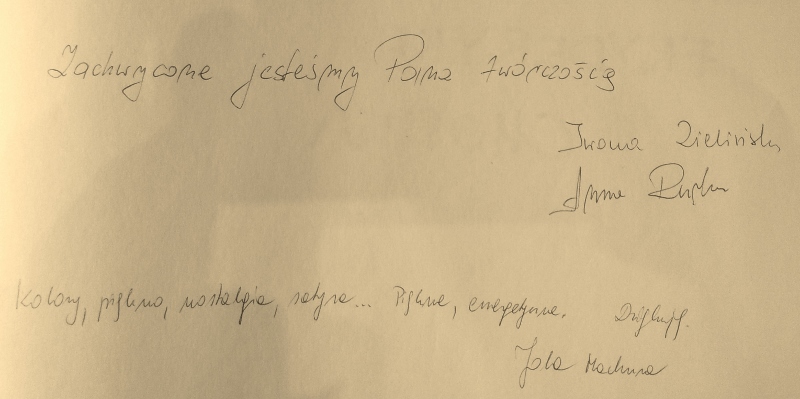 Zachwycone jesteśmy Pana twórczością
Iwona Zielińska
Anna
Kolory, piękno, nostalgia, satyra... Piękne, energetyczne. Dziękuję.
Jola Machura